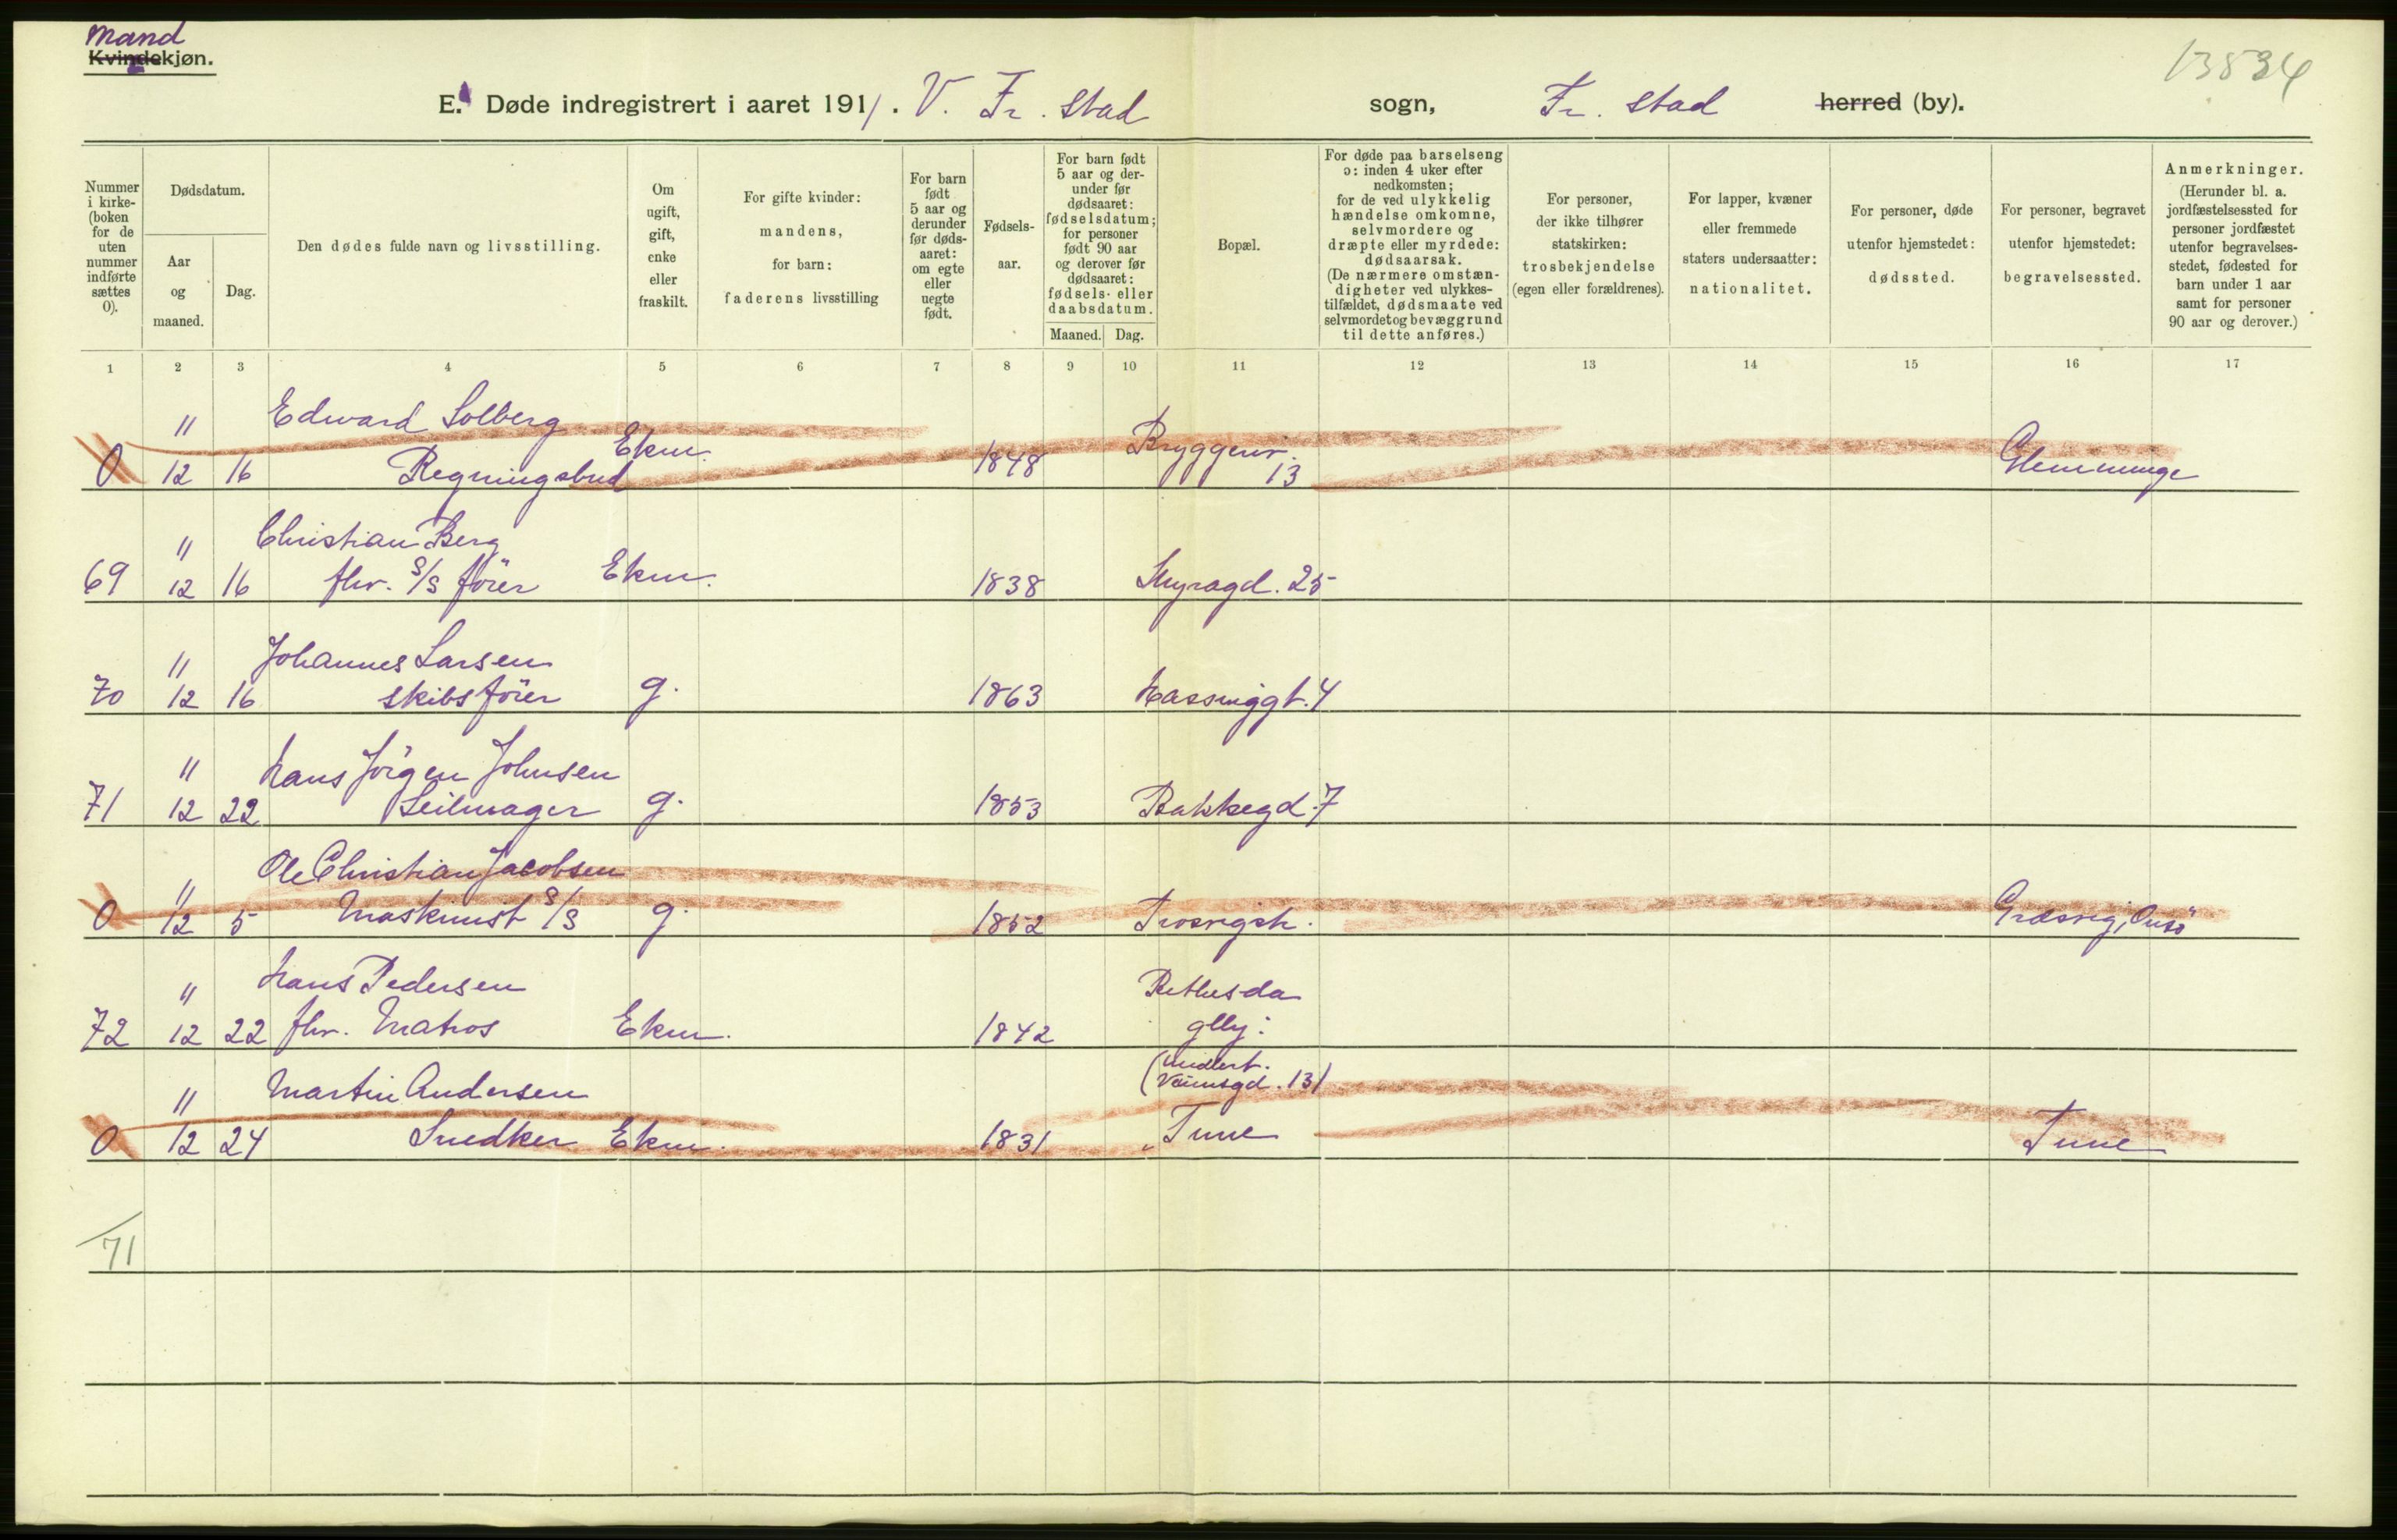 Mand
Kvindekjøn.
13834
E. Døde indregistrert i aaret 1911. V. Fr. stad sogn, Fr. stad herred (by).
Nummer i kirke- (boken for de uten nummer indførte sættes 0).
Dødsdatum.
Aar og maaned.
Dag.
Den dødes fulde navn og livsstilling.
Om ugift, gift, enke eller fraskilt.
For gifte kvinder: mandens, for barn: faderens livsstilling
For barn født 5 aar og derunder før døds- aaret: om egte eller uegte født.
Fødsels- aar.
For barn født 5 aar og der- under før dødsaaret: fødselsdatum; for personer født 90 aar og derover før dødsaaret: fødsels- eller daabsdatum.
Maaned. Dag.
Bopæl.
For døde paa barselseng ɔ: inden 4 uker efter nedkomsten; for de ved ulykkelig hændelse omkomne, selvmordere og dræpte eller myrdede: dødsaarsak. (De nærmere omstæn- digheter ved ulykkes- tilfældet, dødsmaate ved selvmord et og bevæggrund til dette anføres.)
For personer, der ikke tilhører statskirken: trosbekjendelse (egen eller forældrenes).
For lapper, kvæner eller fremmede staters undersaatter: nationalitet.
For personer, døde utenfor hjemstedet: dødssted.
For personer, begravet utenfor hjemstedet: begravelsessted.
Anmerkninger. (Herunder bl. a. jordfæstelsessted for personer jordfæstet utenfor begravelses- stedet, fødested for barn under 1 aar samt for personer 90 aar og derover.)
1 2 3 4 5 6 7 8 9 10 11 12 13 14 15 16 17
11 Edward Solberg
0 12 16 Regningsbud Ekm. 1848 Bryggeriv. 13 Glemminge
11 Christian Berg
69 12 16 fhv. S/S förer Ekm. 1838 Myragd. 25
11 Johannes Larsen
70 12 16 skibsförer g. 1863 Hassinggt. 4
11 Hans Jörgen Johnsen
71 12 22 Seilmager g. 1853 Bakkegd. 7
11 Ole Christian Jacobsen
0 12 5 Maskinist S/S g. 1852 Trosvigst. Græsvig, Onsö
11 Hans Pedersen Bethesda
72 12 22 fhv. Matros Ekm. 1842 glhj:
(midlert.
11 Martin Andersen Vaümsgd. 13)
0 12 24 Snedker Ekm. 1831 Tune Tune
71